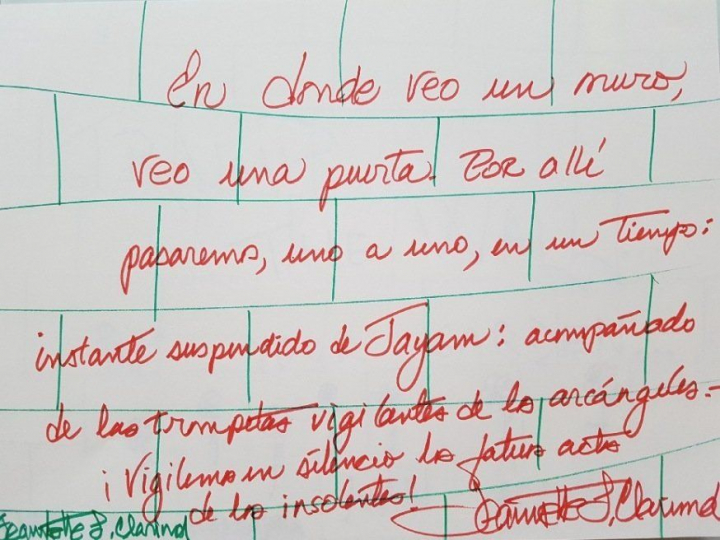 En donde veo un muro,
veo una puerta. Por allí
pasaremos, uno a uno, en un Tiempo:
instante suspendido de Jayam: acompañado
de las trompetas vigilantes de los arcángeles.-
¡Vigilemos en silencio los futuros actos
de los insolentes!
Jeannette L. Clariond
Jeannette L. Clariond